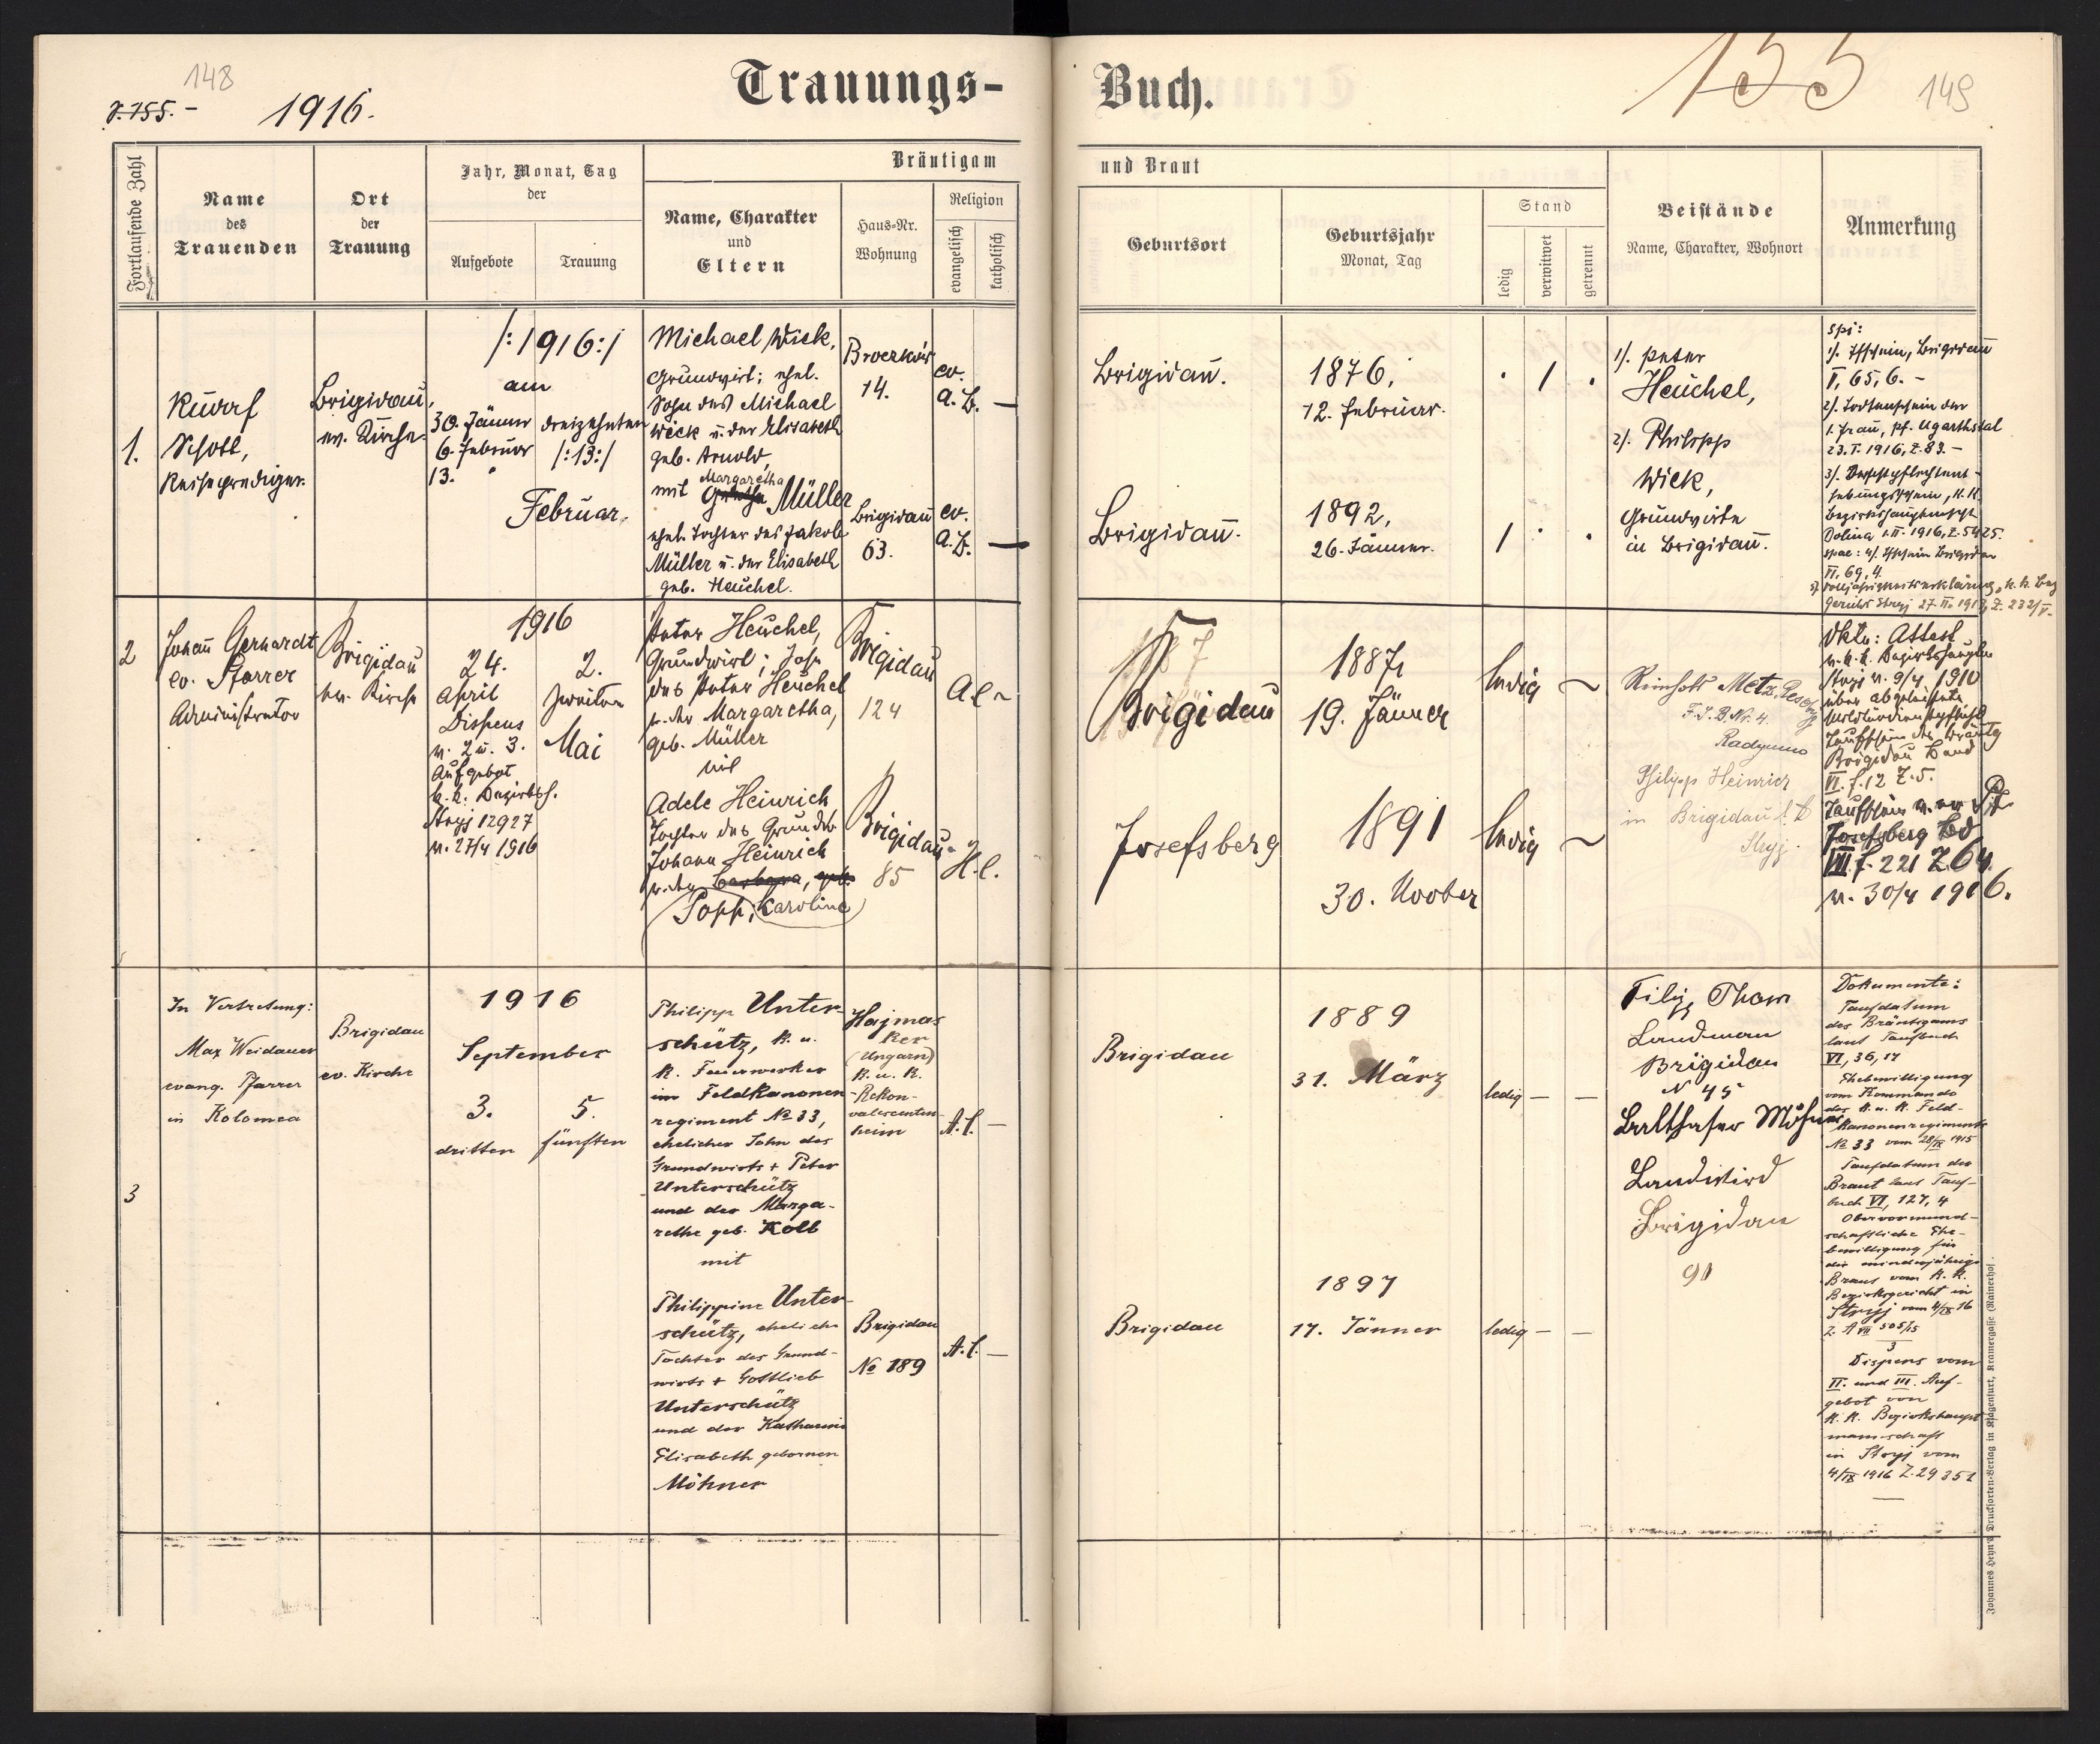 148
S. 155. –
1916.
Trauungs-
Fortlaufende Zahl
Name
des
Trauenden
Ort
der
Trauung
Jahr, Monat, Tag
der
Aufgebote
Trauung
Bräutigam
Name, Charakter
und
Eltern
Haus-Nr.
Wohnung
Religion
evangelisch
katholisch
1.
Rudolf
Scholl,
Reiseprediger.
Brigidau,
ev. Kirche.
/:1916:/
am
30. Jänner
6. Februar
13. "
dreizehnten
/:13:/
Februar.
Michael Wick,
Grundwirt; ehel.
Sohn des Michael
Wick u. der Elisabeth
geb. Arnold,
mit Margaretha Müller
ehel. Tochter des Jakob
Müller u. der Elisabeth
geb. Heuchel.
14.
ev.
A.B. —
Brigidau
63.
ev.
A.B. —
2
Johann Gerhardt
ev. Pfarrer
Administrator
Brigidau
ev. Kirche
1916
24.
April
Dispens
v. 2 u. 3.
Aufgebot
k.k. Bezirksh.
Stryj 12927
v. 27/4 1916
2.
zweiten
Mai
Peter Heuchel,
Grundwirt; Sohn
des Peter Heuchel
u. der Margaretha,
geb. Müller
mit
Adele Heinrich
Tochter des Grundw.
Johann Heinrich
u. der Barbara, geb.
Popp, Karoline
Brigidau
124
Brigidau
85
3
In Vertretung:
Max Weidauer
evang. Pfarrer
in Kolomea
Brigidau
ev. Kirche
1916
September
3.
dritten
5.
fünften
Philipp Unter-
schütz, k. u.
k. Feuerwerker
im Feldkanonen-
regiment № 33,
ehelicher Sohn des
Grundwirts + Peter
Unterschütz
und der Marga-
rethe geb. Kolb
mit
Philippine Unter-
schütz, eheliche
Tochter des Grund-
wirts + Gottlieb
Unterschütz
und der Katharina
Elisabeth gebornen
Möhner
Hajmas
ker
(Ungarn)
k. u. k.
Rekon-
valescenten-
heim
A.C. —
Brigidau
№ 189
A.C. —
Buch.
155
149
und Braut
Geburtsort
Geburtsjahr
Monat, Tag
Stand
ledig
verwitwet
getrennt
Beistände
Name, Charakter, Wohnort
Anmerkung
Brigidau.
1876,
12. Februar.
. / .
Brigidau.
1892,
26. Jänner.
/ . .
1). Peter
Heuchel,
2). Philipp
Wick,
Grundwirte
in Brigidau.
1). Tfschein, Brigidau
V, 65, 6. –
2). Todtenschein der
1. Frau, Pf. Ugartsthal
23.I. 1916, Z. 83. –
Dolina 1.II. 1916, Z. 5425.
VI, 69, 4.
Brigidau
1887,
19. Jänner
ledig
Josefsberg
1891
30. Novber
ledig
Reinhold Metz
F.J.B. Nr. 4.
Radymno
Philipp Heinrich
in Brigidau
Stryj.
Dktn: Attest
v. k.k. Bezirkshauptm.
Stryj v. 9/4 1910
über abgeleistete
Taufschein des Bräutg
Brigidau Band
VI. f. 12 Z. 5.
Josefsberg Bd
VII. f. 221 Z 64.
v. 30/4 1916.
Brigidau
1889
31. März
ledig — —
Brigidau
1897
17. Jänner
ledig — —
Filip Thom
Landman
Brigidau
N 45
Balthaser Möhner
Landwird
Brigidau
91
Dokumente:
Taufdatum
des Bräutigams
laut Taufbuch
VI, 36, 17
Ehebewilligung
vom Kommando
des k. u. k. Feld-
kanonenregiments
№ 33 vom 28/IX 1915
Taufdatum der
Braut laut Tauf-
buch VI, 127, 4
Obervormund-
schaftliche Ehe-
bewilligung für
die minderjährige
Braut vom k. k.
Bezirksgericht in
Stryj vom 4/IX 16
Z. A VII 505/15
3
Dispens vom
II. und III. Auf-
gebot von
k. k. Bezirkshaupt-
mannschaft
in Stryj vom
4/IX 1916 Z. 29351
Johannes Heyn's Drucksorten-Verlag in Klagenfurt, Kramergasse (Rainerhof).